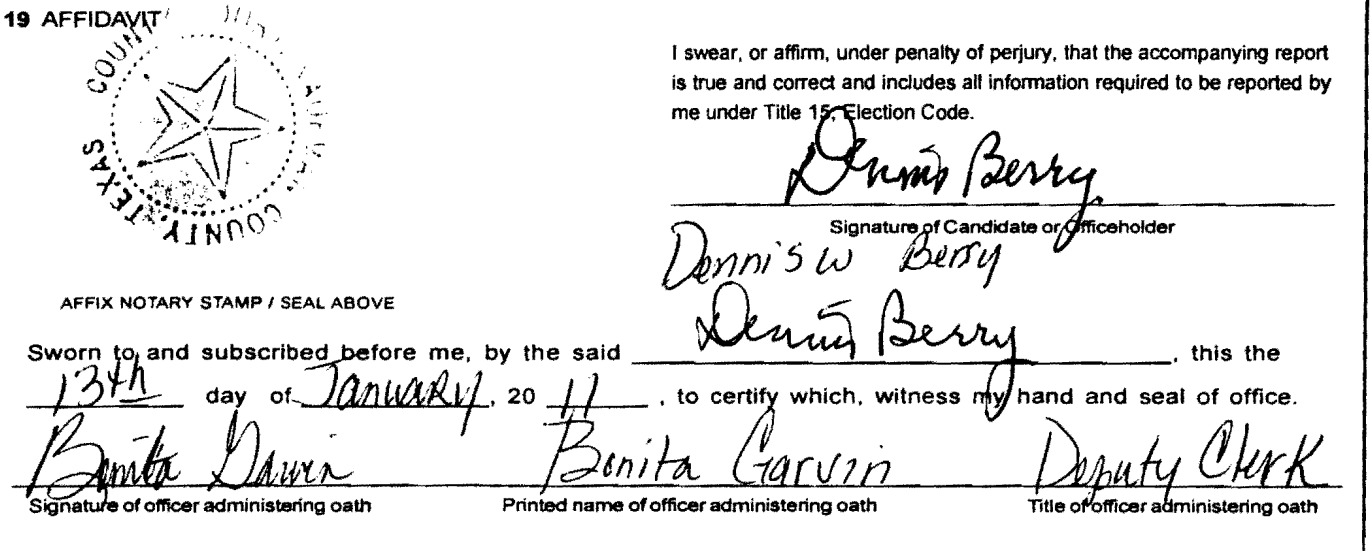 19 AFFIDAVIT
COUNTY, TEXAS
I swear, or affirm, under penalty of perjury, that the accompanying report
is true and correct and includes all information required to be reported by
me under Title 15, Election Code.
Dennis Berry
Signature of Candidate or Officeholder
Dennis W Berry
AFFIX NOTARY STAMP / SEAL ABOVE
Sworn to and subscribed before me, by the said Dennis Berry, this the
13th day of January, 20 11, to certify which, witness my hand and seal of office.
Bonita Garvin Bonita Garvin Deputy Clerk
Signature of officer administering oath Printed name of officer administering oath Title of officer administering oath